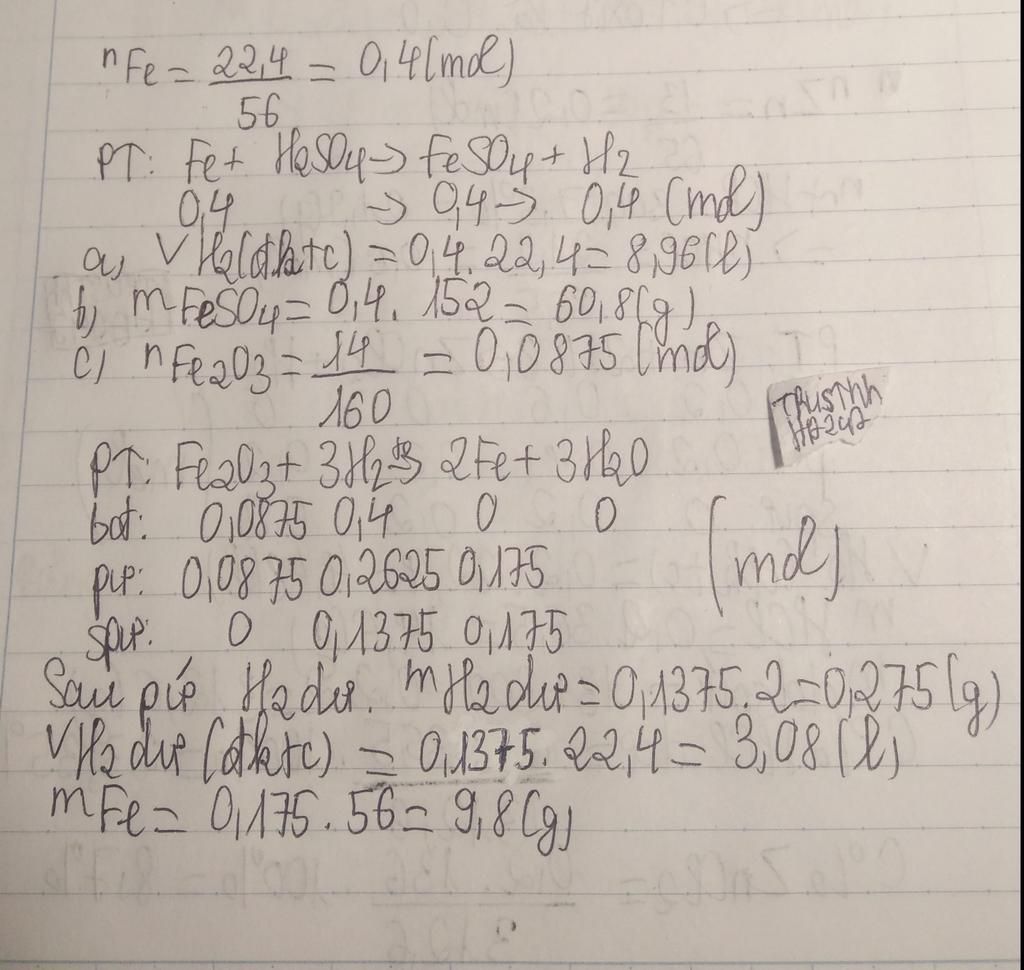 nFe = 22,4/56 = 0,4 (mol)
PT: Fe + H2SO4 → FeSO4 + H2
0,4 → 0,4 → 0,4 (mol)
a, V H2(đktc) = 0,4. 22,4 = 8,96(l)
b, mFeSO4 = 0,4. 152 = 60,8(g)
c, nFe2O3 = 14/160 = 0,0875 (mol)
PT: Fe2O3 + 3H2 → 2Fe + 3H2O
bđ: 0,0875 0,4 0 0
pư: 0,0875 0,2625 0,175 (mol)
spư: 0 0,1375 0,175
Sau pư H2 dư. mH2 dư = 0,1375.2 = 0,275(g)
VH2 dư (đktc) = 0,1375. 22,4 = 3,08 (l)
mFe = 0,175.56 = 9,8(g)